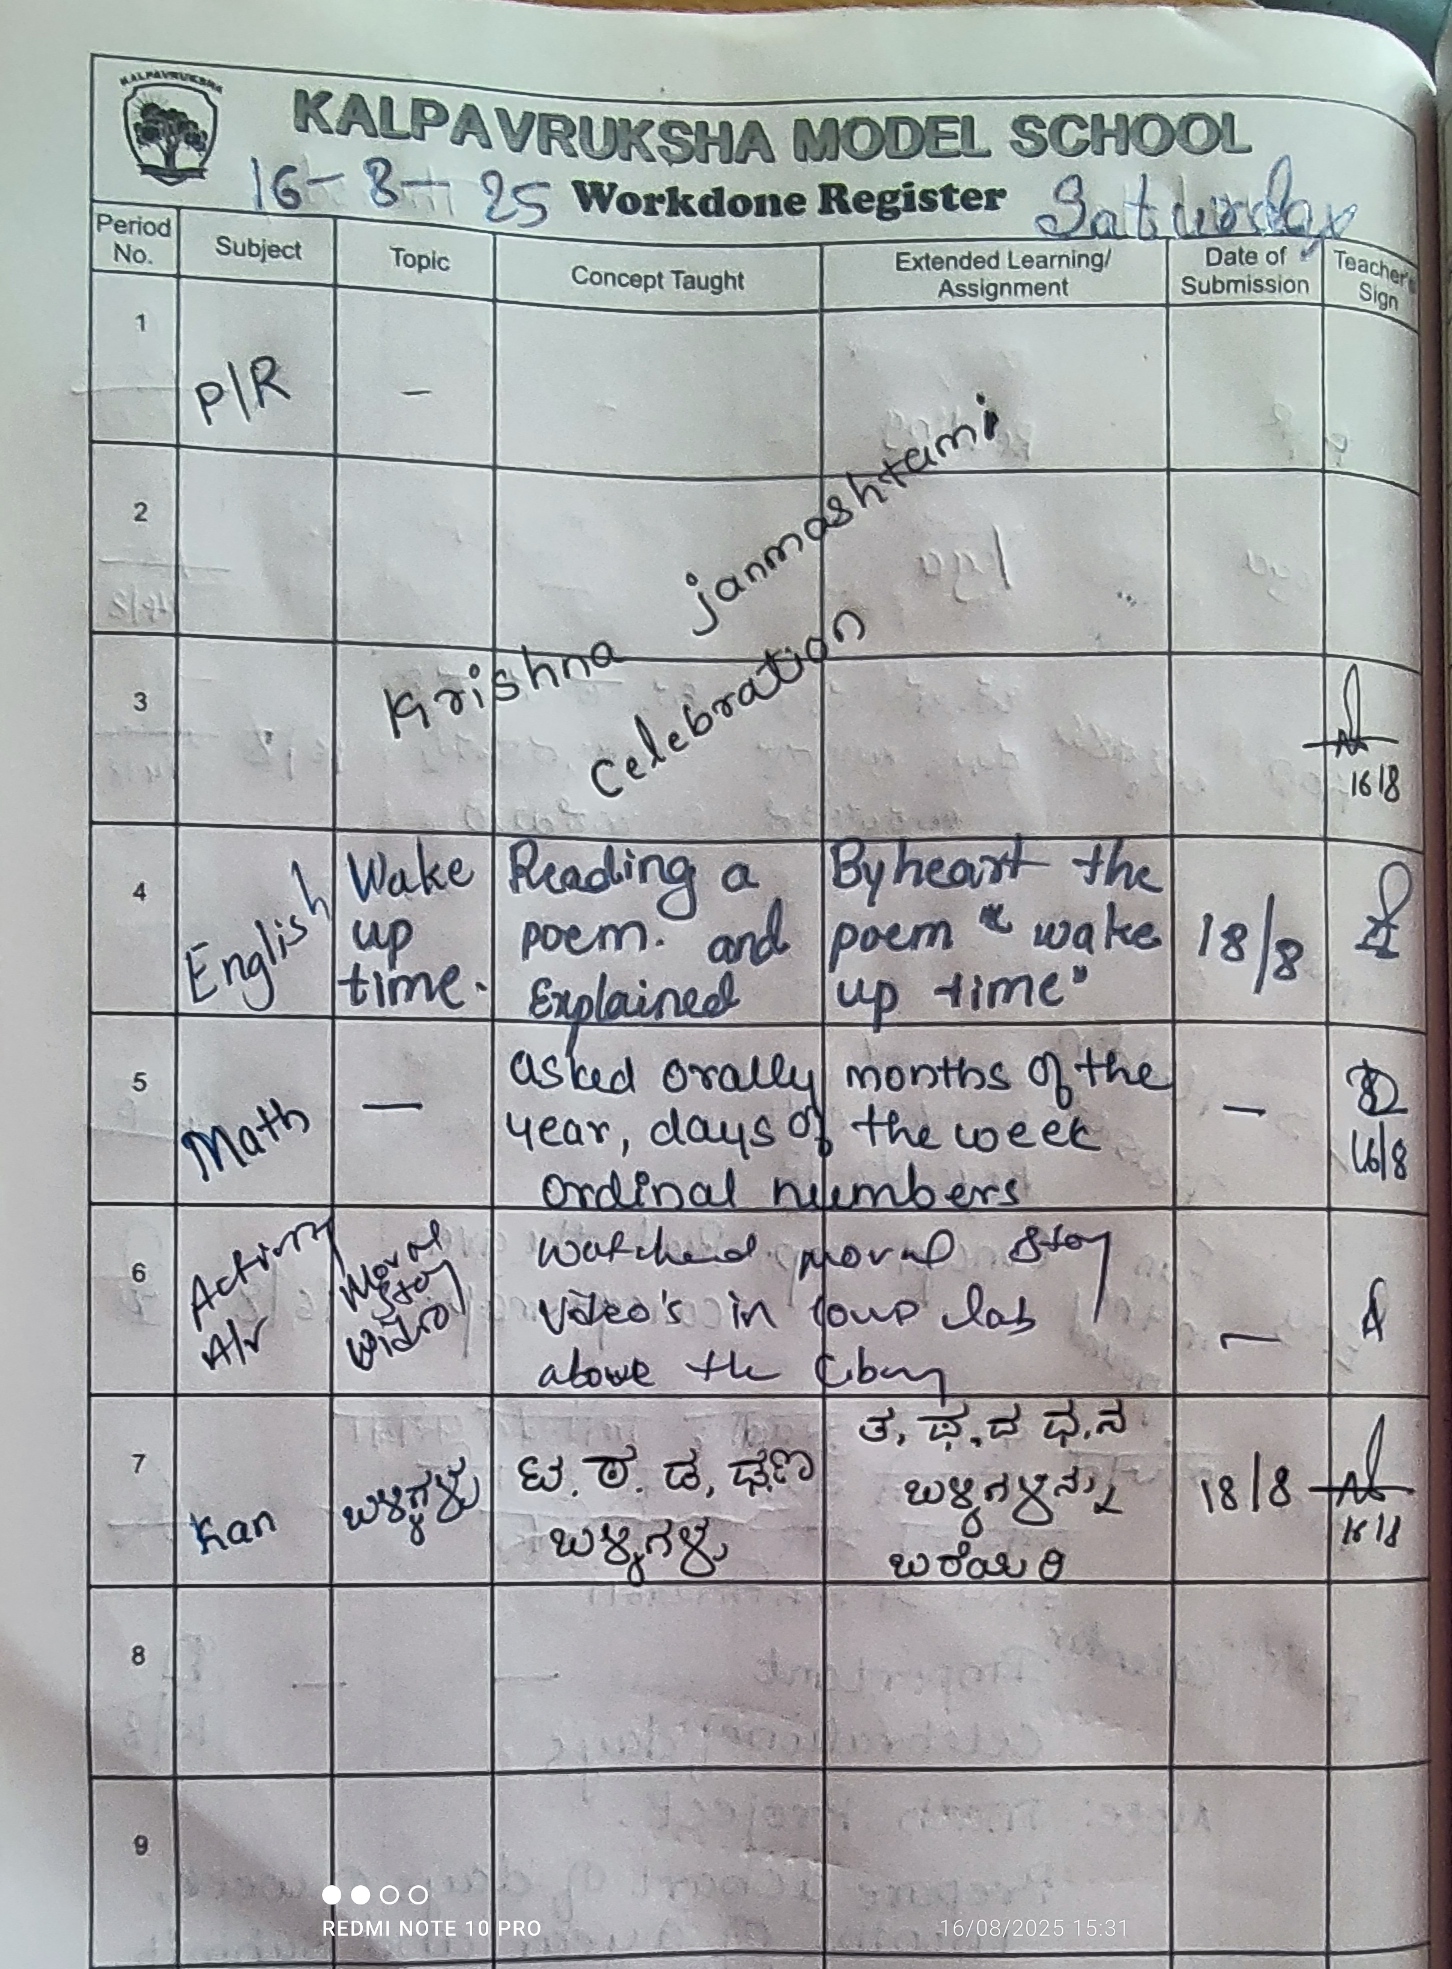 KALPAVRUKSHA
KALPAVRUKSHA MODEL SCHOOL
16-8-25 Workdone Register Saturday
Period No. Subject Topic Concept Taught Extended Learning/ Assignment Date of Submission Teacher's Sign
1 P/R -
2
Krishna janmashtami
celebration
3
16/8
4 English Wake up time. Reading a poem. and Explained Byheart the poem "wake up time" 18/8
5 Math - asked orally months of the
year, days of the week
ordinal numbers
- 16/8
6 Activity A/V Moral story video watched moral story
video's in lab
above the
-
7 Kan ಬಳ್ಳಿಗಳು ಟ. ಠ. ಡ, ಢ,ಣ ಬಳ್ಳಿಗಳು ತ, ಥ, ದ ಧ,ನ ಬಳ್ಳಿಗಳನ್ನು ಬರೆಯಿರಿ 18/8
16/8
8
9
REDMI NOTE 10 PRO
16/08/2025 15:31